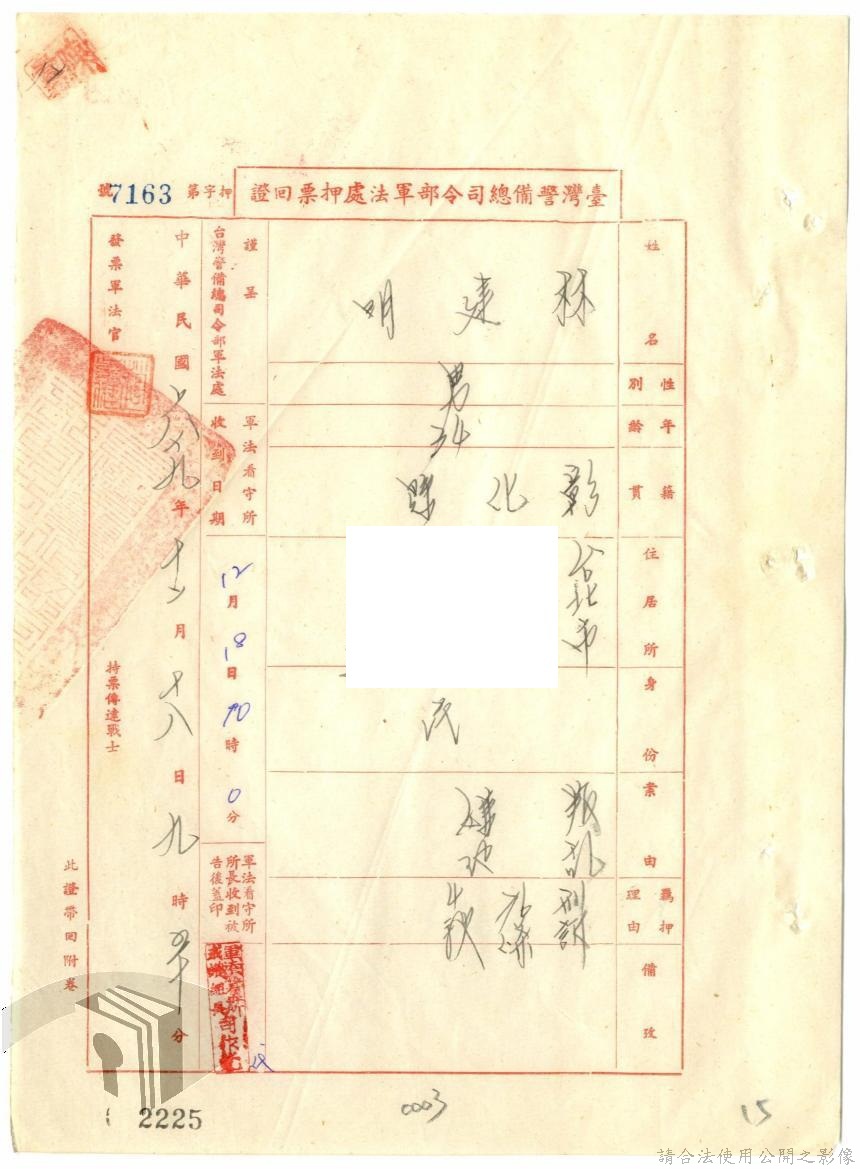 臺灣警備總司令部軍法處押票回證
押字第7163號
姓名
林建明
性別
男
年齡
34
籍貫
彰化縣
住居所
台北市
身份
民
案由
叛亂
嫌疑
羈押理由
刑訴
備攷
謹呈
台灣警備總司令部軍法處
軍法看守所
收到日期
12月18日10時0分
軍法看守所
所長收到被
告後蓋印
中華民國六十九年十二月十八日九時五十分
發票軍法官
持票傳達戰士
此證帶回附卷
2225
0003
15
請合法使用公開之影像